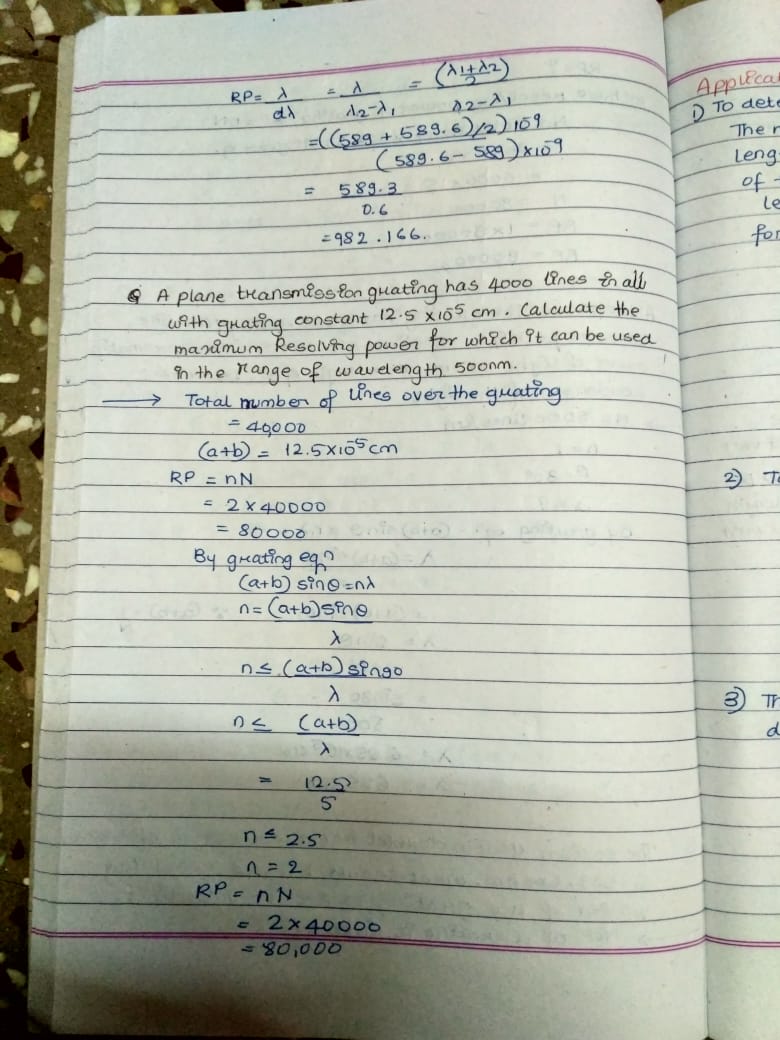 RP = λ/dλ = λ/λ2-λ1 = (λ1+λ2/2)/λ2-λ1
= ((589 + 589.6)/2) 10^-9/(589.6 - 589) × 10^-9
= 589.3/0.6
= 982.166.
Q A plane transmission grating has 4000 lines in all
with grating constant 12.5 × 10^-5 cm. Calculate the
maximum Resolving power for which it can be used
in the range of wavelength 500nm.
→ Total number of lines over the grating
= 40,000
(a+b) = 12.5×10^-5 cm
RP = nN
= 2 × 40000
= 80000
By grating eqn
(a+b) sinθ = nλ
n = (a+b) sinθ/λ
n ≤ (a+b) sin90/λ
n ≤ (a+b)/λ
= 12.5/5
n ≤ 2.5
n = 2
RP = nN
= 2 × 40000
= 80,000
1) To
The
of
for
2)
3)